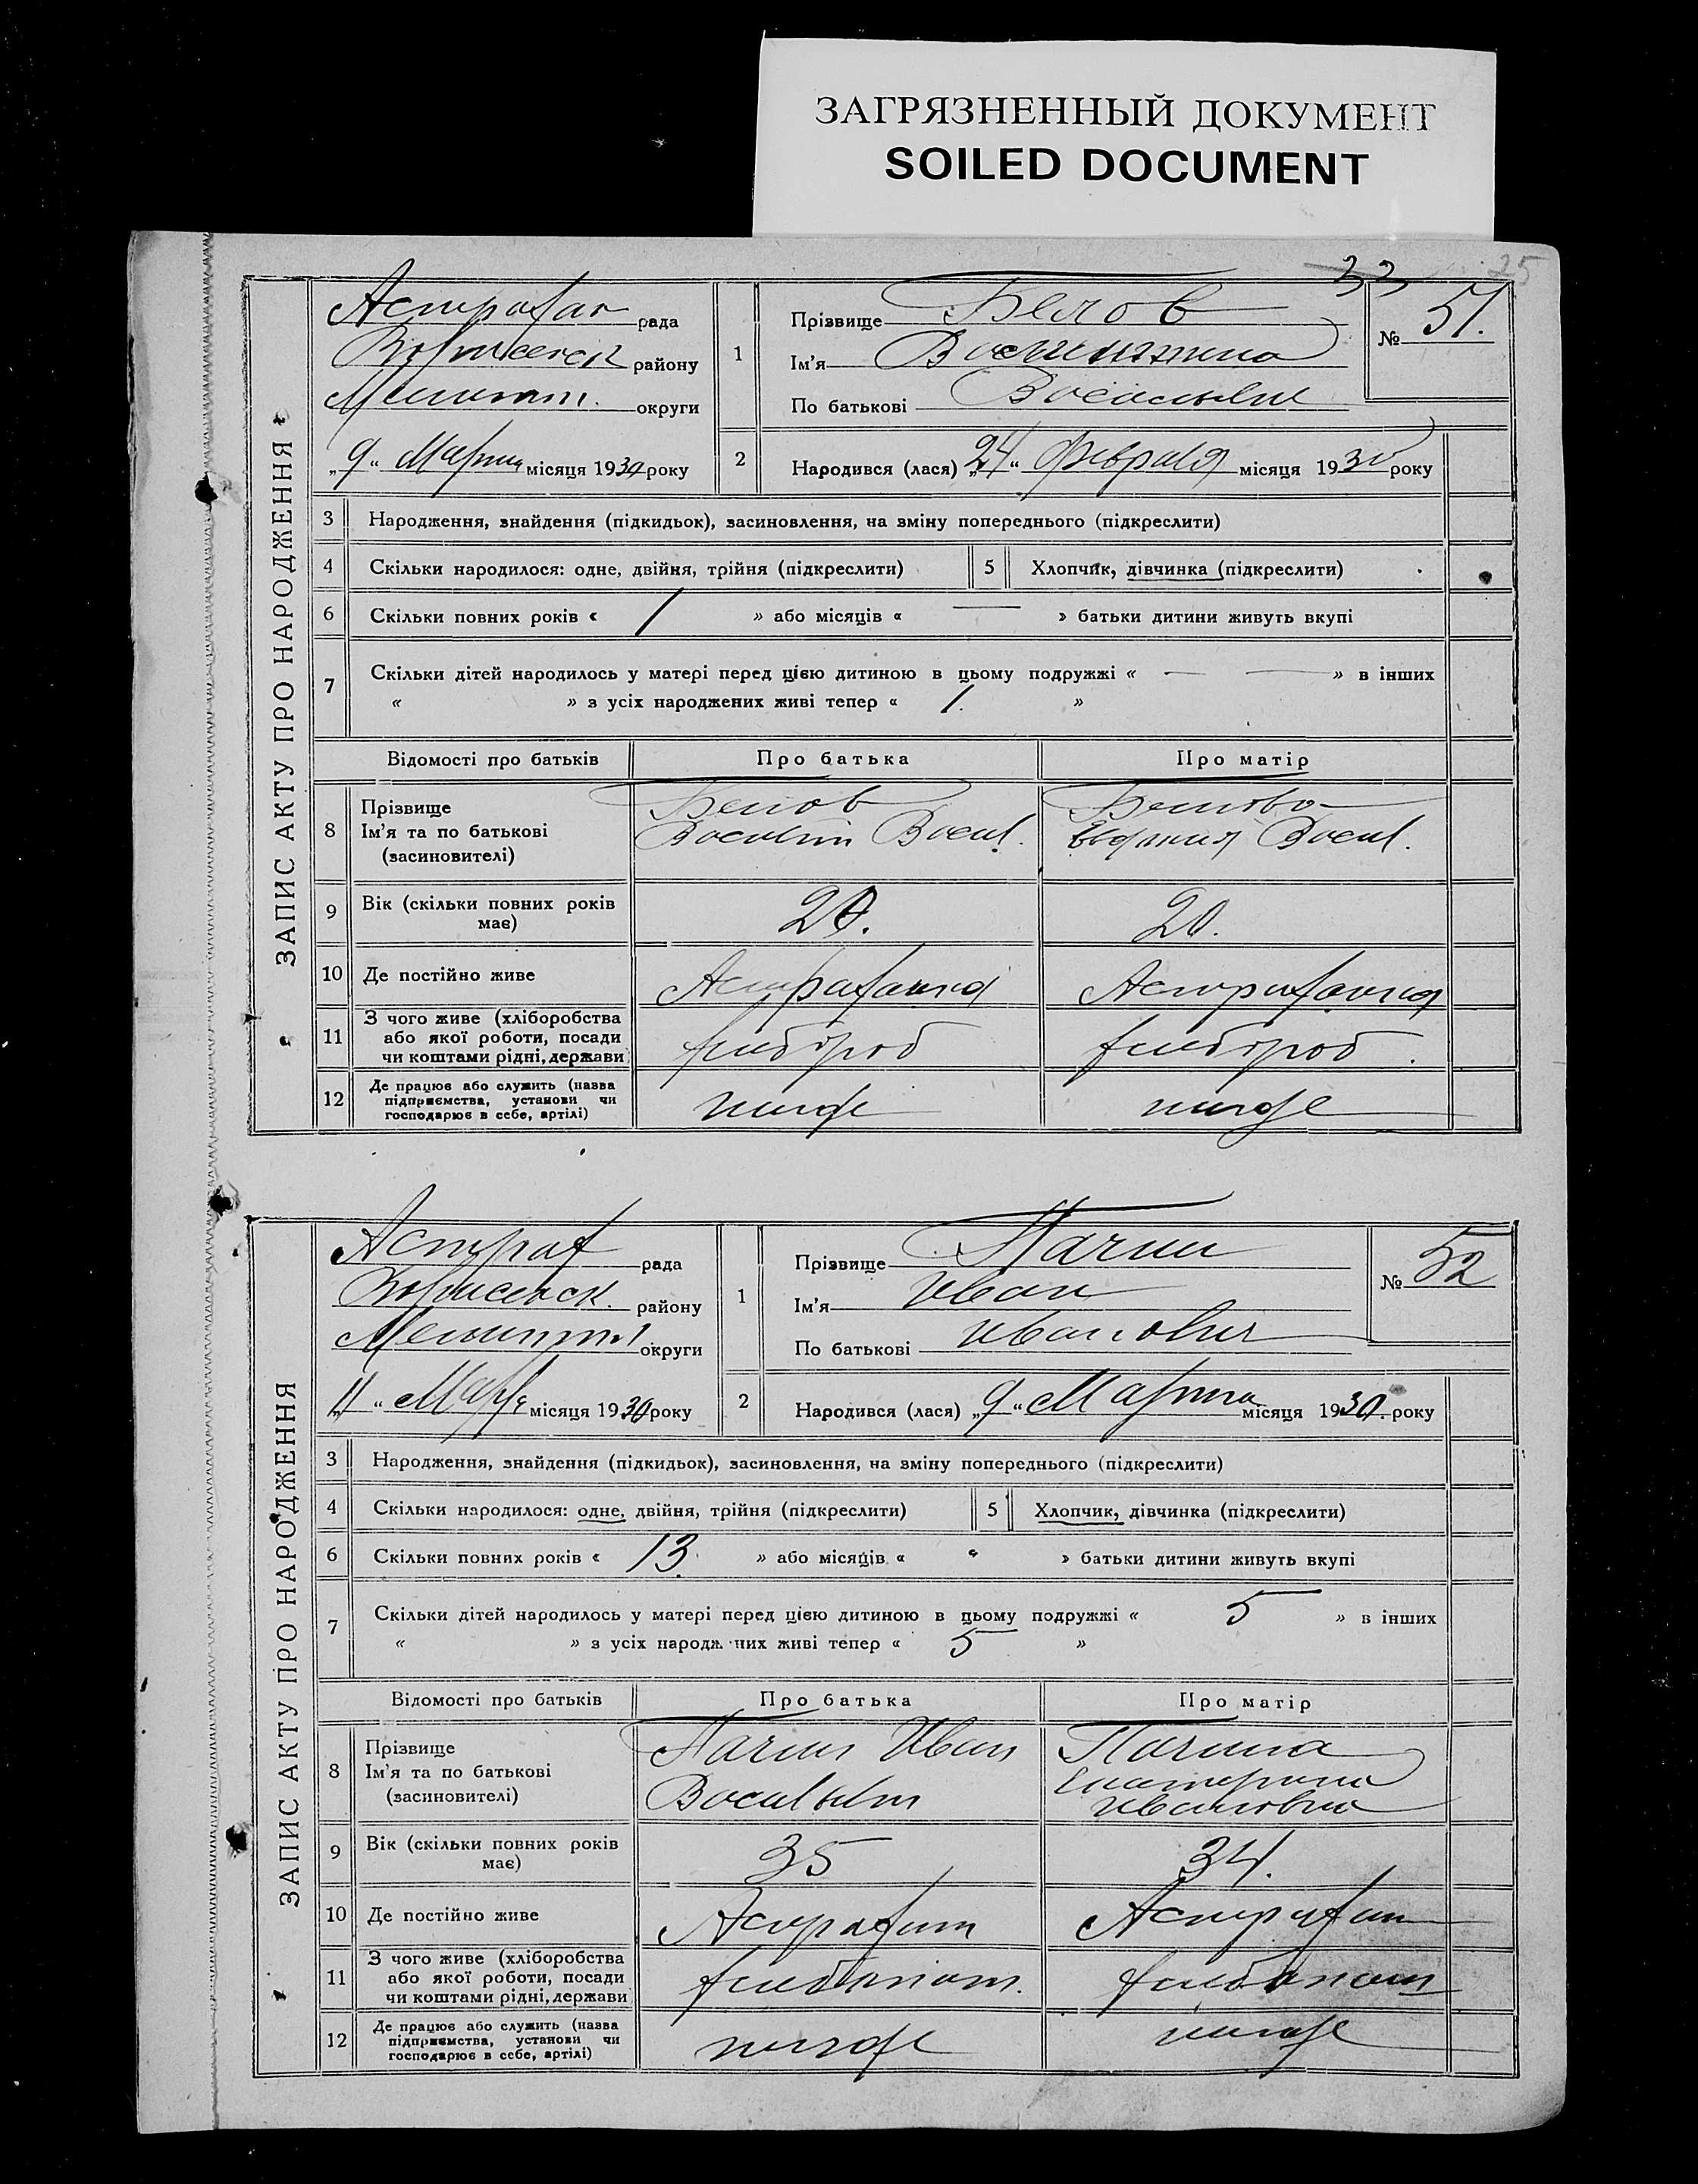 ЗАГРЯЗНЕННЫЙ ДОКУМЕНТ
SOILED DOCUMENT
33 25
ЗАПИС АКТУ ПРО НАРОДЖЕННЯ
Астрахан рада
району
Мелитоп. округи
„9“ Марта місяця 1930 року
1 Прізвище Белов
Ім’я Валентина
По батькові Васильевна
№ 51.
2 Народився (лася) „24“ Февраля місяця 1930 року
3 Народження, знайдення (підкидьок), засиновлення, на зміну попереднього (підкреслити)
4 Скільки народилося: одне, двійня, трійня (підкреслити) 5 Хлопчик, дівчинка (підкреслити)
6 Скільки повних років « 1 » або місяців « — » батьки дитини живуть вкупі
7 Скільки дітей народилось у матері перед цією дитиною в цьому подружжі « — — » в інших
« » з усіх народжених живі тепер « 1. »
Відомості про батьків Про батька Про матір
8 Прізвище Белов Белова
Ім’я та по батькові Василий Васил. Евдокия Васил.
(засиновителі)
9 Вік (скільки повних років має) 20. 20.
10 Де постійно живе Астраханка Астраханка
11 З чого живе (хліборобства
або якої роботи, посади хлебороб хлебороб.
чи коштами рідні, держави
12 Де працює або служить (назва
підприємства, установи чи нигде нигде
господарює в себе, артілі)
ЗАПИС АКТУ ПРО НАРОДЖЕННЯ
Астрах рада
району
Мелитоп. округи
„11“ Мар. місяця 1930 року
1 Прізвище Пачин
Ім’я Иван
По батькові Иванович
№ 52
2 Народився (лася) „9“ Марта місяця 1930. року
3 Народження, знайдення (підкидьок), засиновлення, на зміну попереднього (підкреслити)
4 Скільки народилося: одне, двійня, трійня (підкреслити) 5 Хлопчик, дівчинка (підкреслити)
6 Скільки повних років « 13. » або місяців « “ » батьки дитини живуть вкупі
7 Скільки дітей народилось у матері перед цією дитиною в цьому подружжі « 5 » в інших
« » з усіх народж них живі тепер « 5 »
Відомості про батьків Про батька Про матір
8 Прізвище Пачин Иван Пачина
Ім’я та по батькові Васильев Екатерина
(засиновителі) Ивановна
9 Вік (скільки повних років має) 35 34.
10 Де постійно живе Астрахан Астрахан
11 З чого живе (хліборобства
або якої роботи, посади хлебопаш. хлебопаш
чи коштами рідні, держави
12 Де працює або служить (назва
підприємства, установи чи нигде нигде
господарює в себе, артілі)